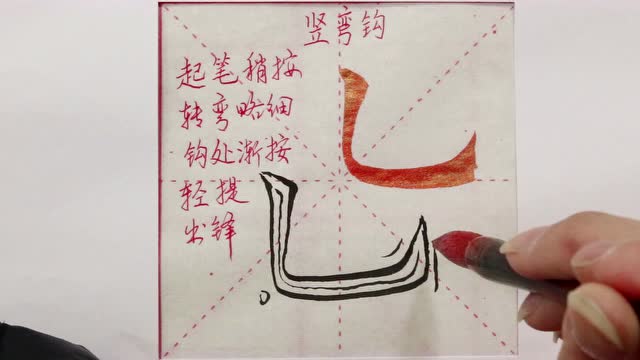 竖弯钩
起笔稍按
转弯略细
钩处渐按
轻提
出锋